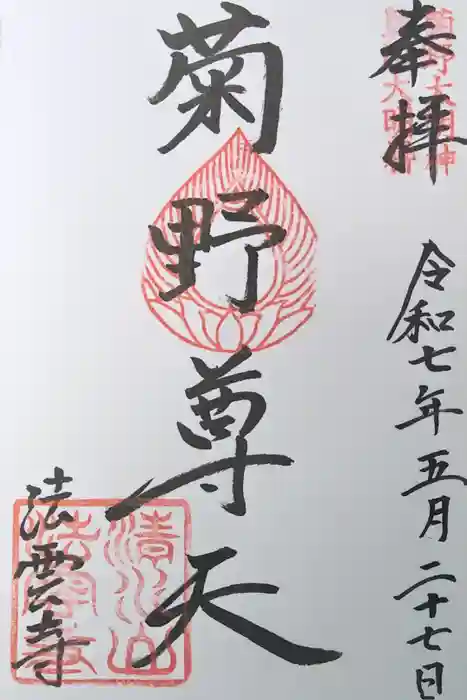 奉拝
令和七年五月二十七日
菊野尊天
法雲寺
清水山
法雲寺